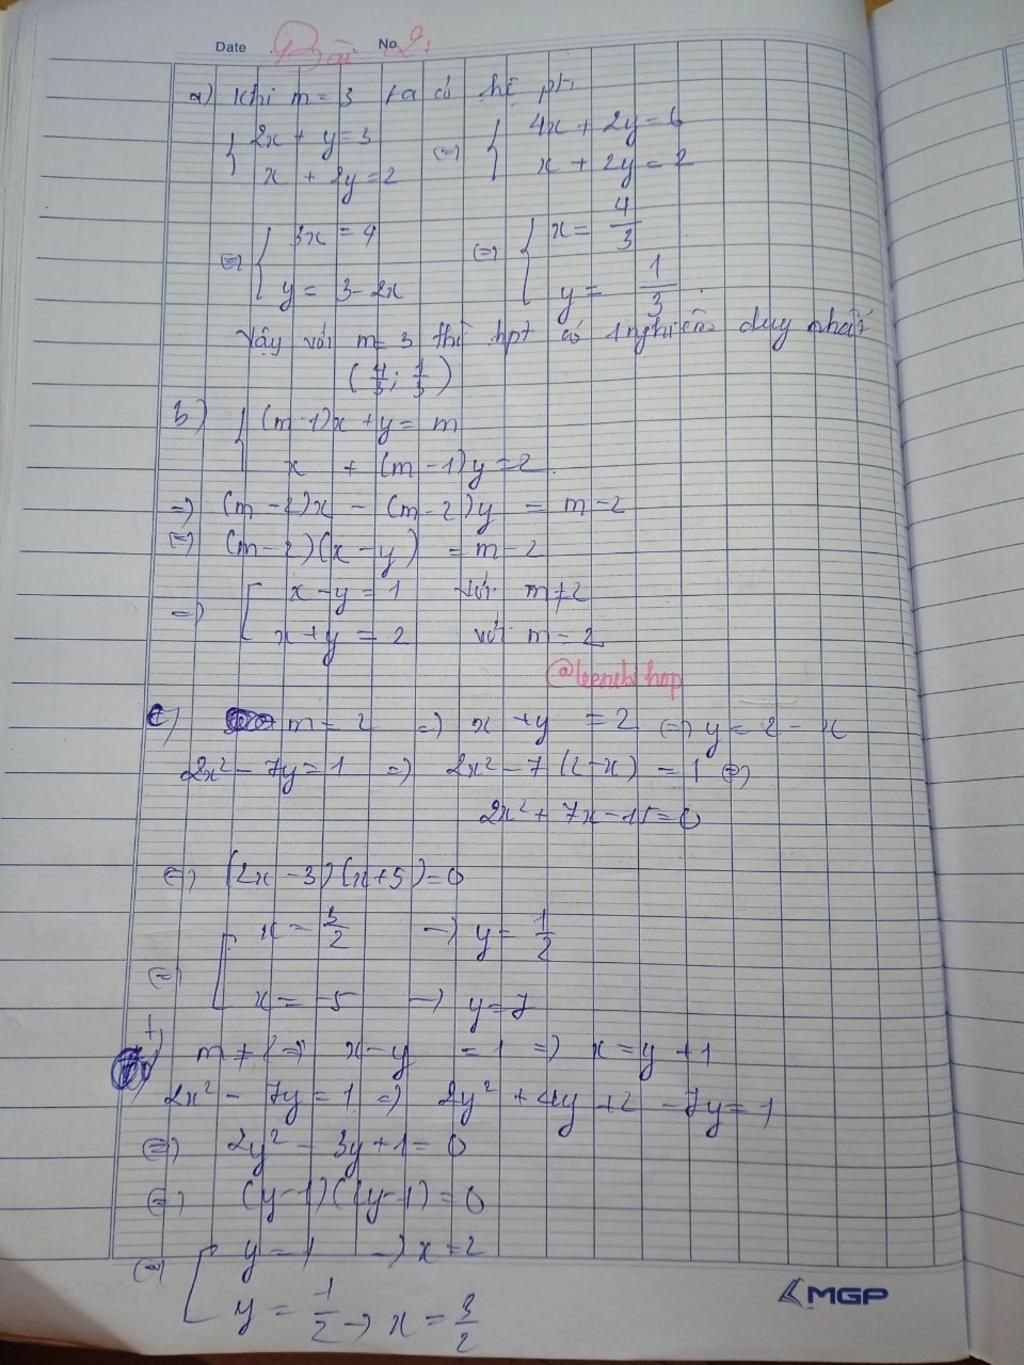 Date Bài No 2.
a) Khi m = 3 ta có hệ pt.
{ 2x + y = 3 (=) { 4x + 2y = 6
x + 2y = 2 x + 2y = 2
(=) { 3x = 4 (=) { x = 4/3
y = 3 - 2x y = 1/3 .
Vậy với m = 3 thì hpt có 1 nghiệm duy nhất
(4/3; 1/3)
b) { (m-1)x + y = m
x + (m-1)y = 2
=) (m-2)x - (m-2)y = m-2
(=) (m-2)(x-y) = m-2
=) [ x-y = 1 với m ≠ 2
x+y = 2 với m = 2
c) m = 2 =) x + y = 2 (=) y = 2 - x
2x² - 7y = 1 =) 2x² - 7(2-x) = 1 (=)
2x² + 7x - 15 = 0
(=) (2x-3)(x+5) = 0
(=) [ x = 3/2 -> y = 1/2
x = -5 -> y = 7
+) m ≠ 2 =) x-y = 1 =) x = y + 1
2x² - 7y = 1 =) 2y² + 4y + 2 - 7y = 1
(=) 2y² - 3y + 1 = 0
(=) (y-1)(2y-1) = 0
(=) [ y = 1 -> x = 2
y = 1/2 -> x = 3/2
MGP